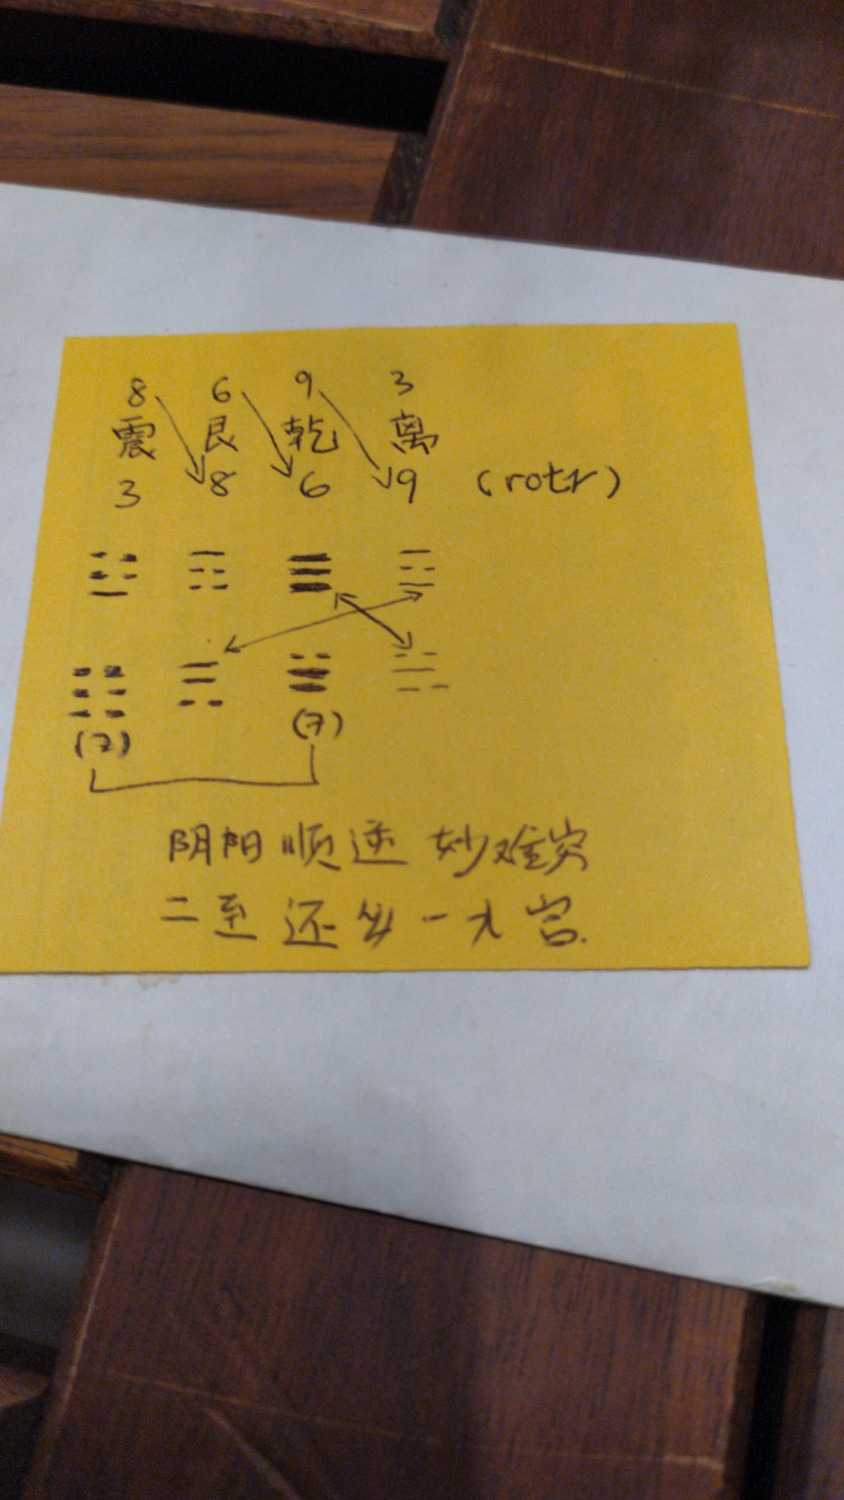 8 6 9 3
震 艮 乾 离
3 8 6 9 (rotr)
(7) (7)
阴阳顺逆妙难穷
二至还归一九宫.